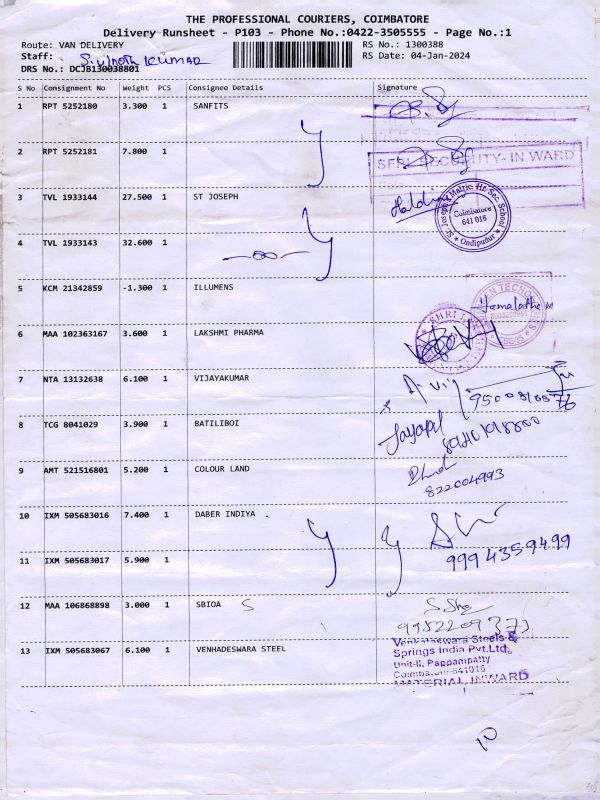 THE PROFESSIONAL COURIERS, COIMBATORE
Delivery Runsheet - P103 - Phone No.:0422-3505555 - Page No.:1
Route: VAN DELIVERY RS No.: 1300388
Staff: S. Vinoth Kumar RS Date: 04-Jan-2024
DRS No.: DCJB130038801
S No Consignment No Weight PCS Consignee Details Signature
1 RPT 5252180 3.300 1 SANFITS
2 RPT 5252181 7.800 1
IN WARD
3 TVL 1933144 27.500 1 ST JOSEPH
St Joseph's Matric. Hr. Sec. School
Coimbatore
641 016
* Ondipudur *
4 TVL 1933143 32.600 1
5 KCM 21342859 -1.300 1 ILLUMENS
Hemalatha M
6 MAA 102363167 3.600 1 LAKSHMI PHARMA
7 NTA 13132638 6.100 1 VIJAYAKUMAR
8 TCG 8041029 3.900 1 BATILIBOI
Jayapal
9 AMT 521516801 5.200 1 COLOUR LAND
822004993
10 IXM 505683016 7.400 1 DABER INDIYA
9994359499
11 IXM 505683017 5.900 1
12 MAA 106868898 3.000 1 SBIOA S
9952209373
13 IXM 505683067 6.100 1 VENHADESWARA STEEL
Venkateswara Steels &
Springs India Pvt.Ltd,
Unit-II, Pappampatty
Coimbatore-641016
MATERIAL INWARD
10